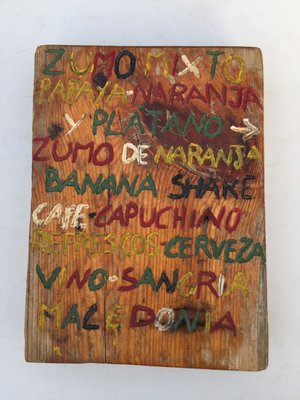 ZUMO MIXTO
PAPAYA-NARANJA
Y PLATANO →
ZUMO DE NARANJA
BANANA SHAKE
CAFE-CAPUCHINO
REFRESCOS-CERVEZA
VINO-SANGRIA
MACEDONIA